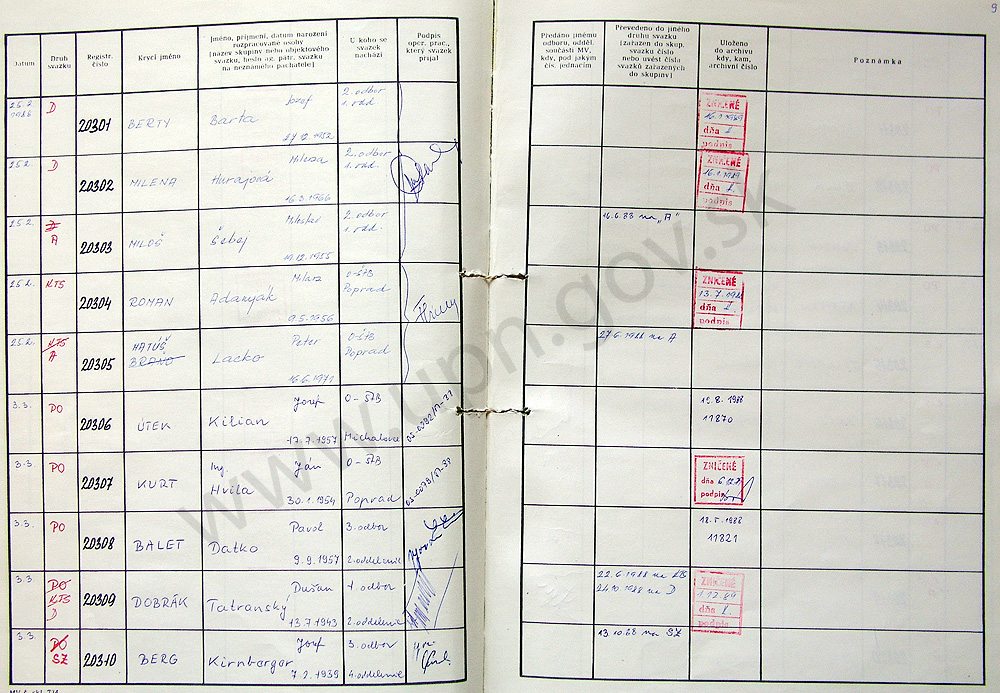 9
Datum
Druh svazku
Registr. číslo
Krycí jméno
Jméno, příjmení, datum narození
rozpracované osoby
(název skupiny nebo objektového
svazku, heslo ag. pátr. svazku
na neznámého pachatele)
U koho se
svazek
nachází
Podpis
oper. prac.,
který svazek
přijal
Předáno jinému
odboru, odděl.
součásti MV,
kdy, pod jakým
čís. jednacím
Převedeno do jiného
druhu svazku
(zařazen do skup.
svazku číslo
nebo uvést čísla
svazků zařazených
do skupiny)
Uloženo
do archivu
kdy, kam,
archivní číslo
Poznámka
25.2. 1988 D 20301 BERTY Jozef Barta 27.12.1952 2. odbor 1. odd.
ZNIČENÉ
16.1.1989
dňa
podpis
25.2. D 20302 MILENA Milena Hurajová 16.3.1966 2. odbor 1. odd.
ZNIČENÉ
16.1.1989
dňa
podpis
25.2. A 20303 MILOŠ Šebej 19.12.1955 2. odbor 1. odd.
16.6.88 na „A"
25.2. KTS 20304 ROMAN Milan Adamják 9.5.1956 O-ŠtB Poprad
ZNIČENÉ
dňa
podpis
25.2. KTS A 20305 MATÚŠ BRAŇO Peter Lacko 16.6.1971 O-ŠtB Poprad
27.6.1988 na A
3.3. PO 20306 ÚTEK Jozef Kilian 17.7.1957 O-ŠtB Michalovce
19.8.1988
11870
3.3. PO 20307 KURT Ing. Ján Hvila 30.1.1954 O-ŠtB Poprad
ZNIČENÉ
dňa
podpis
3.3. PO 20308 BALET Pavol Datko 9.9.1957 3. odbor 2. oddelenie
18.5.1988
11821
3.3. PO KTS D 20309 DOBRÁK Dušan Tatranský 13.7.1943 1. odbor 2. oddelenie
22.6.1988 na KTS
24.10.1988 na D
ZNIČENÉ
1.12.89
dňa
podpis
3.3. PO SZ 20310 BERG Jozef Kirnberger 7.2.1939 3. odbor 4. oddelenie
13.10.88 na SZ
www.upn.gov.sk